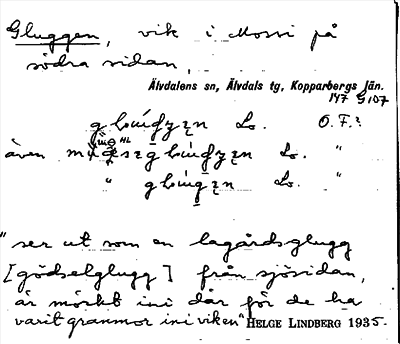 Gluggen, vik i Mossi på
södra sidan,
Älvdalens sn, Älvdals tg, Kopparbergs län.
147 G 107
Lo. O.F.:
även Lo. "
" Lo. "
"ser ut som en lagårdsglugg
[gödselglugg] från sjösidan,
är mörkt ini där för de ha
varit granmor ini viken" HELGE LINDBERG 1935.